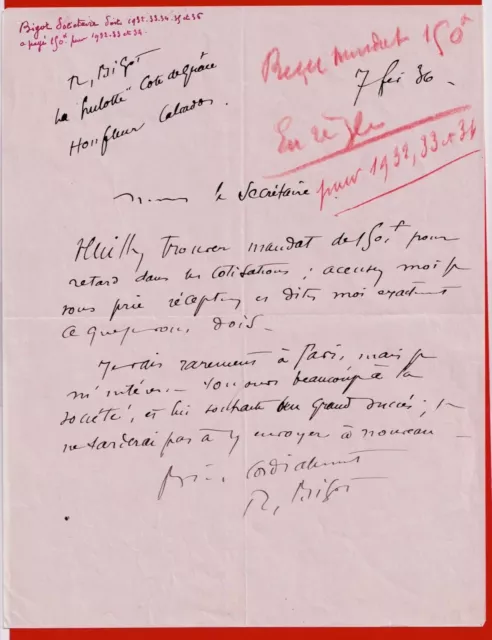 Bigot Sociétaire doit 1932.33.34.35 et 36
a payé 150f pour 1932.33 et 34
Reçu mandat 150f
7 fév 36.
R. Bigot
La "hulotte" Cote de Grâce
Honfleur Calvados.
En règle
pour 1932, 33 et 34
le Secrétaire
Veuillez trouver mandat de 150f pour
retard dans les cotisations ; accusez moi je
vous prie réception et dites moi exactement
ce que je vous dois.
Je vais rarement à Paris, mais je
m'intéresse toujours beaucoup à la
société, et lui souhaite bien grand succès ; je
ne tarderai pas à y envoyer à nouveau
Bien cordialement
R. Bigot